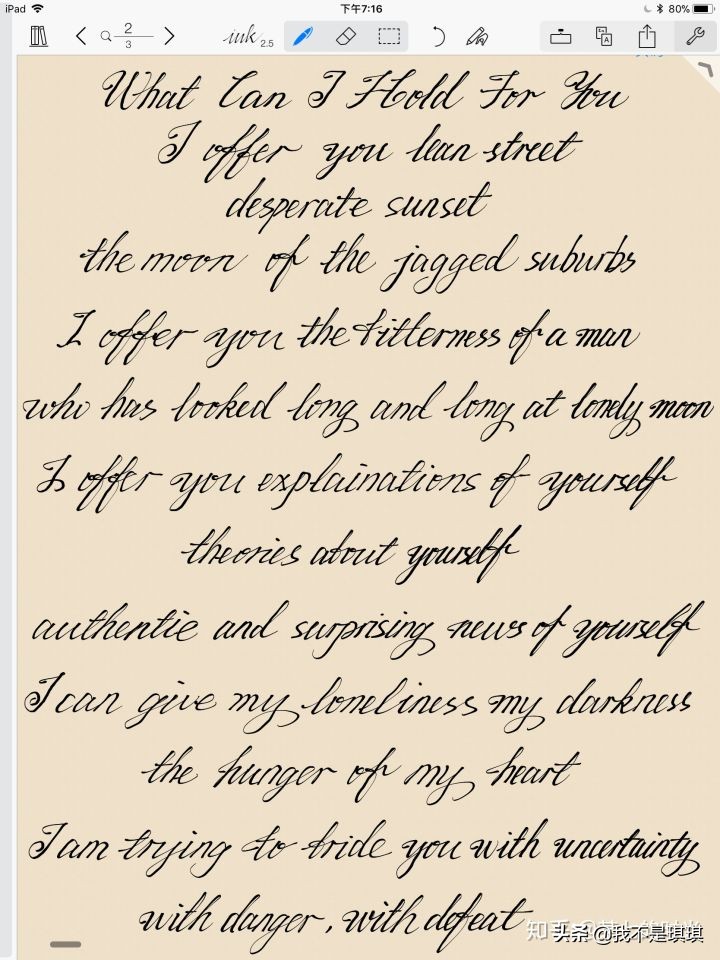 iPad 下午7:16 80%
2
3
ink 2.5
What Can I Hold For You
I offer you lean street
desperate sunset
the moon of the jagged suburbs
I offer you the bitterness of a man
who has looked long and long at lonely moon
I offer you explainations of yourself
theories about yourself
authentic and surprising news of yourself
I can give my loneliness my darkness
the hunger of my heart
I am trying to bride you with uncertainty
with danger, with defeat
知乎
头条 @我不是琪琪